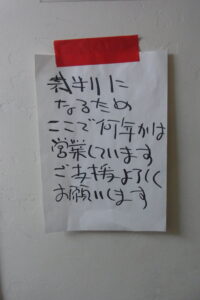 になるため
ここで何年かは
営業しています
ご支援よろしく
お願いします